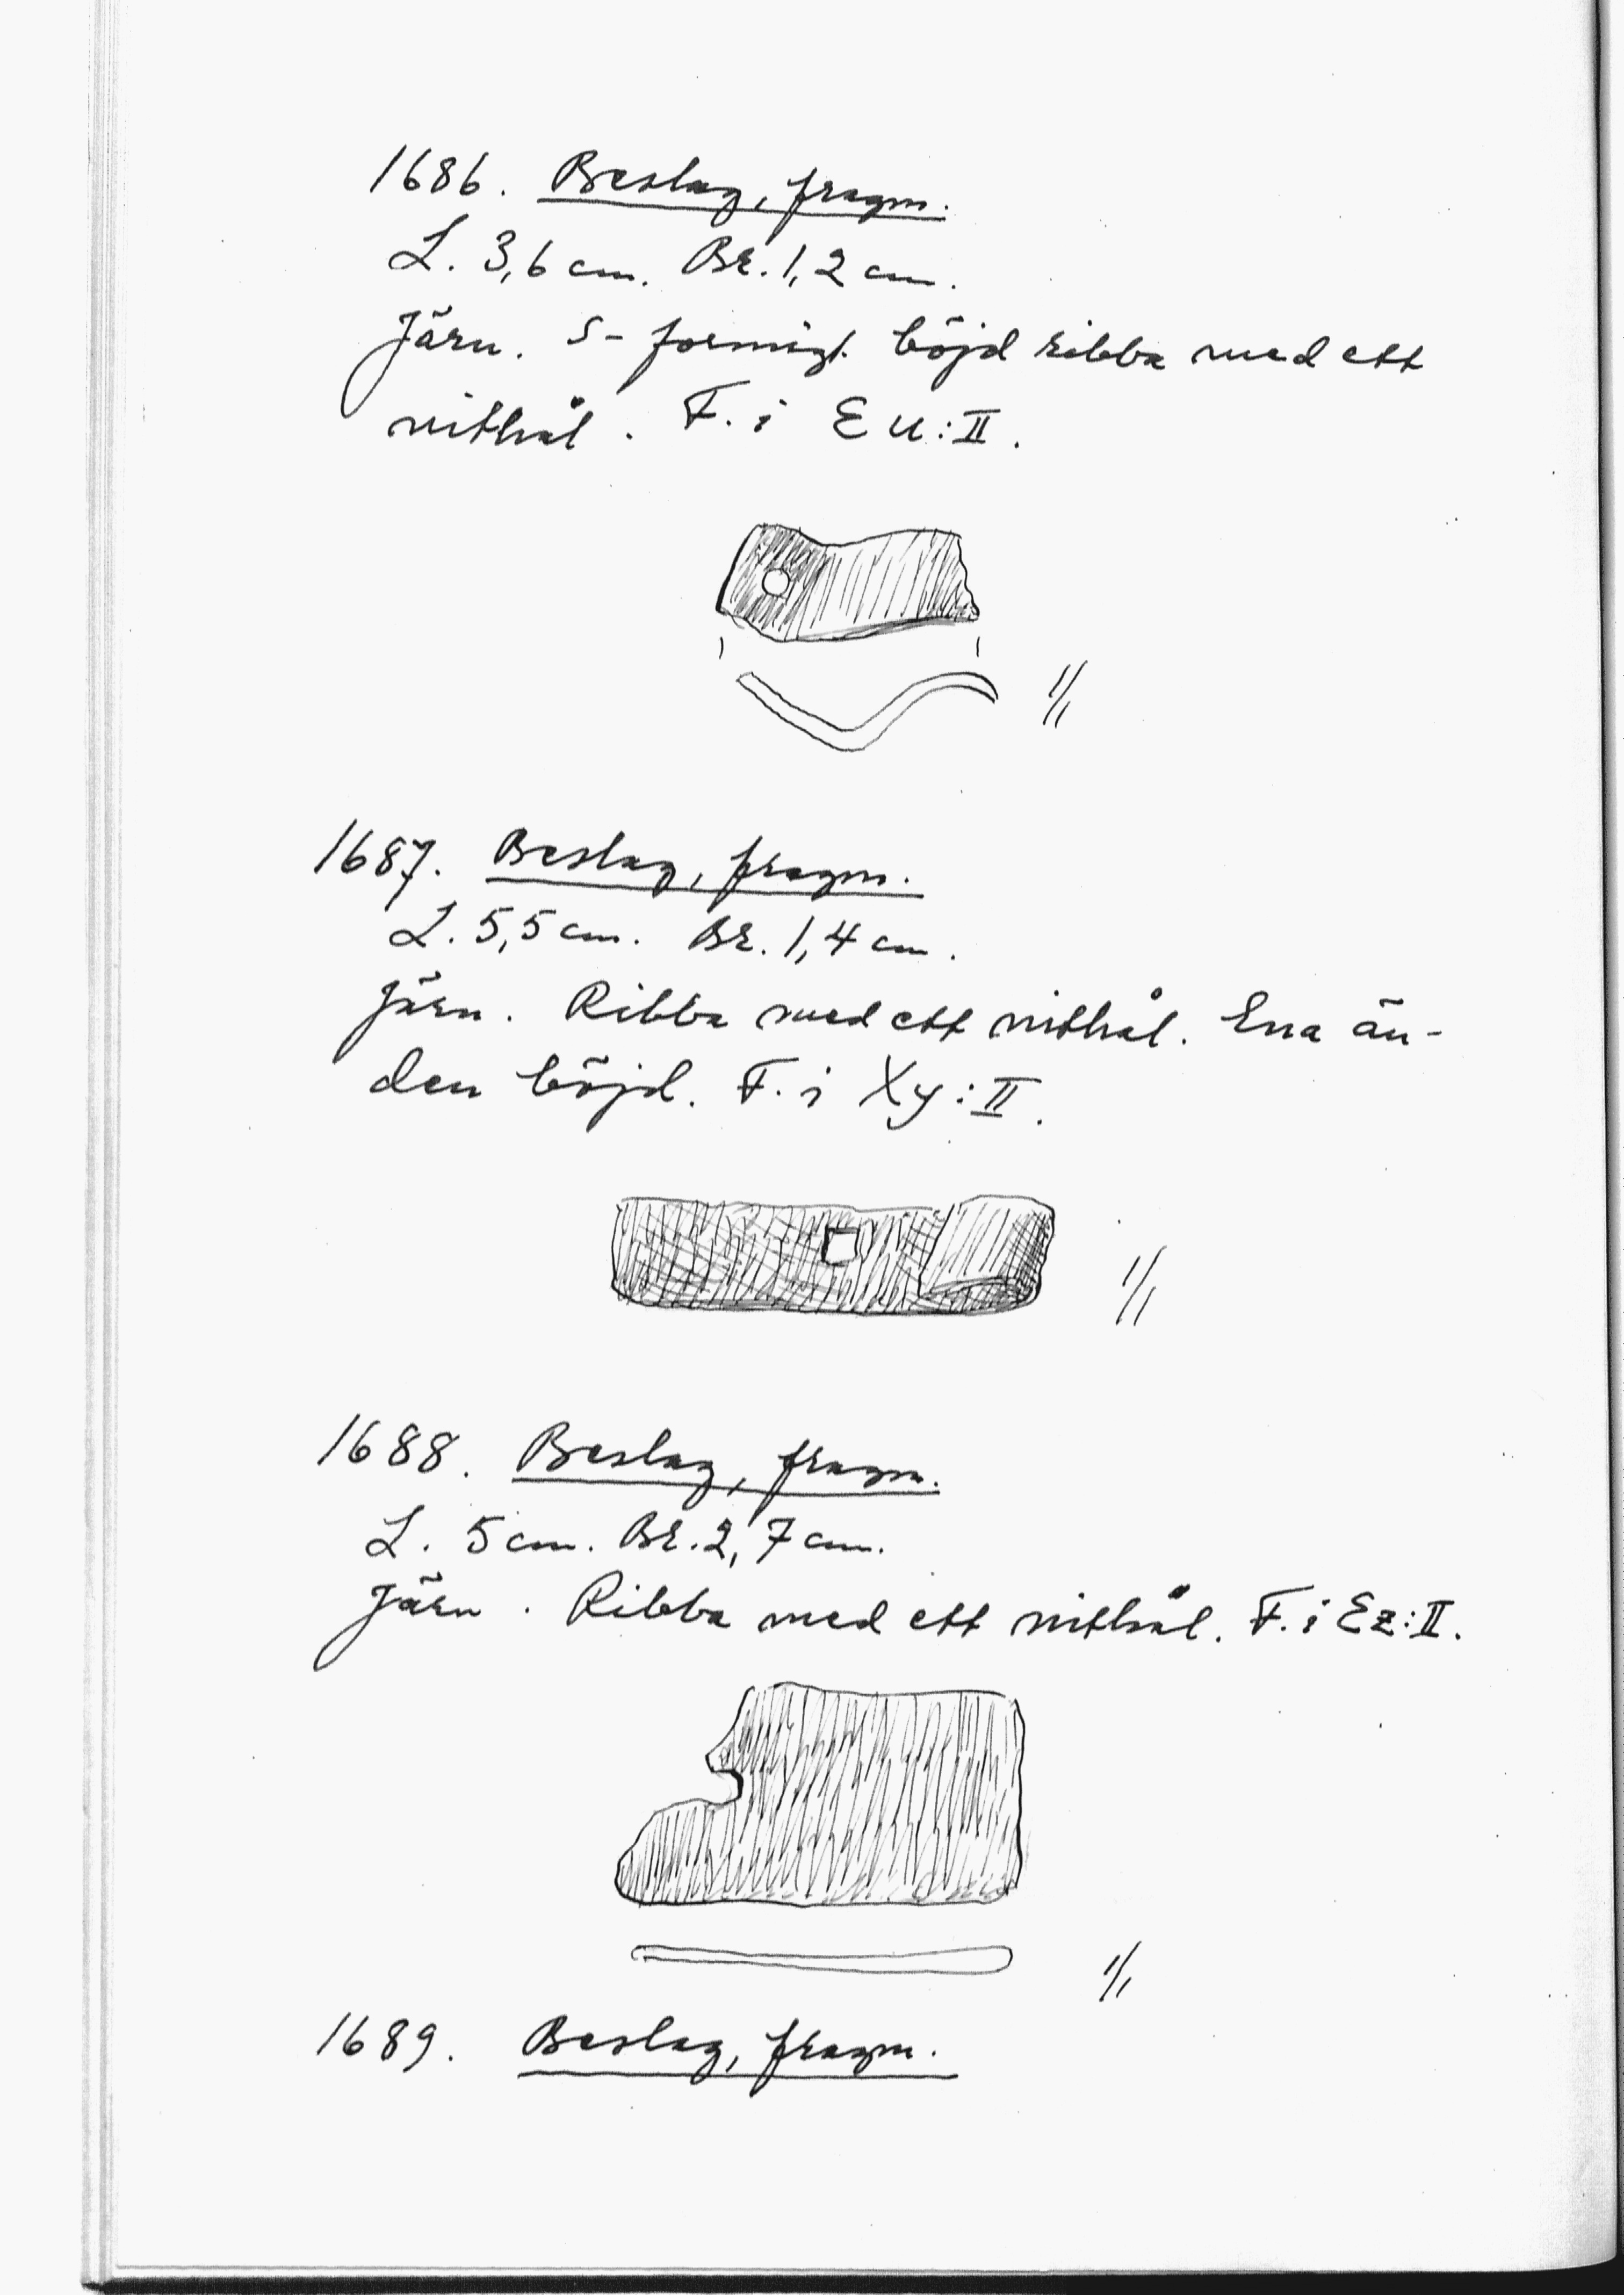 1686. Beslag, fragm.
L. 3,6 cm. Br. 1,2 cm.
Järn. S-formigt böjd ribba med ett
nithål. F. i Eu:II.
1/1
1687. Beslag, fragm.
L. 5,5 cm. Br. 1,4 cm.
Järn. Ribba med ett nithål. Ena än-
den böjd. F. i Xy:II.
1/1
1688. Beslag, fragm.
L. 5 cm. Br. 2,7 cm.
Järn. Ribba med ett nithål. F. i Ez:II.
1/1
1689. Beslag, fragm.